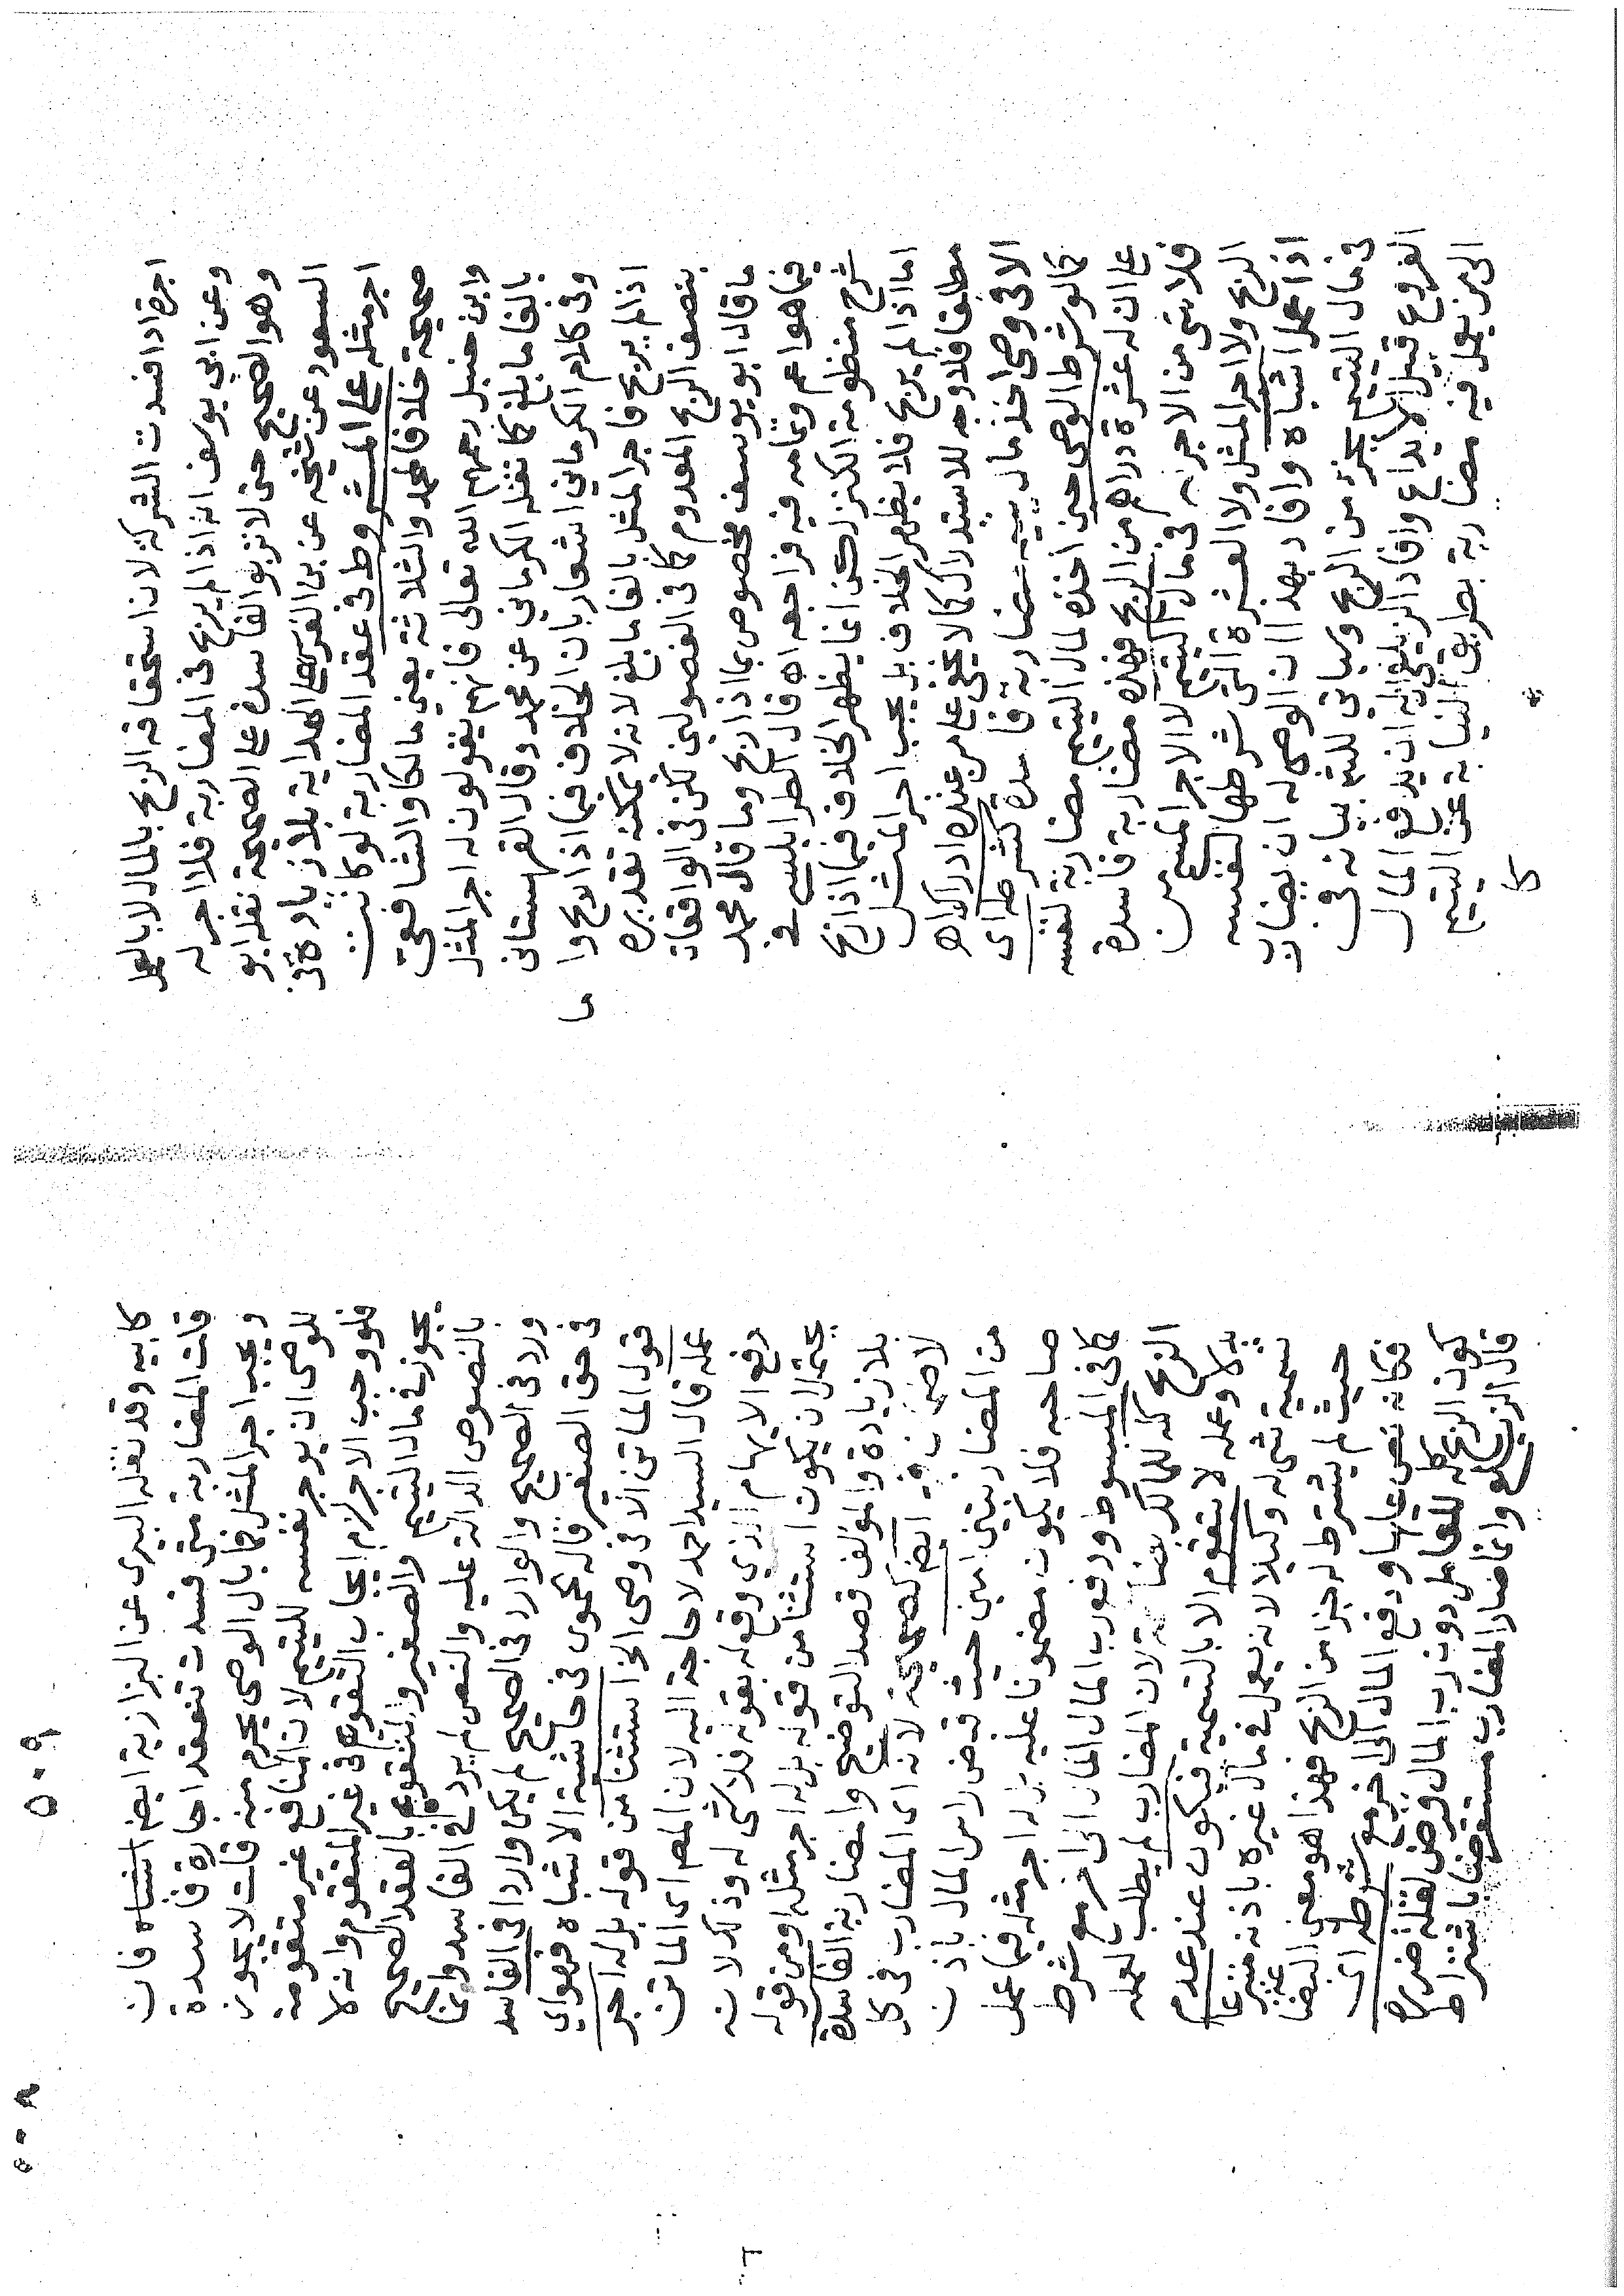 اجرة اذا فسدت الشركة لان استحقاقه الربح بالمال لا بالعمل
وعن ابي يوسف انه اذا لم يربح في المضاربة فلا اجر له
وهو الصحيح حتى لا تربوا الفاسدة على الصحيحة نقله ابو
السعود عن شيخه عن بن الفرس على الهداية بلا زيادة في
اجر مثله على المشروط في عقد المضاربة لو كانت
صحيحة خلافا لمحمد والثلاثة يعني مالكا والشافعي
وابن حنبل رحمهم الله تعالى فانهم يقولون له اجر المثل
بالغا ما بلغ كما نقله الكرماني عن محمد وقال القهستاني
وفي كلام الكرماني اشعار بان الخلاف فيما اذا ربح وا
ما
اذا لم يربح فاجر المثل بالغا ما بلغ لانه لا يمكنه تقديره
بنصف الربح المعدوم كما في الفصولين لكن في الواقعات
ما قاله ابو يوسف مخصوص بما اذا ربح وما قال محمد
فيما هو اعم وتمامه فيه فراجعه اه قال الطرابلسي في
شرح منظومة الكنز لكن انما يظهر الخلاف فيما اذا ربح
اما اذا لم يربح فلا يظهر الخلاف بل يجب اجر المثل
مطلقا فلا وجه للاستدراك كما لا يخفى على من عنده ادراك اه
الا في وصي اخذ مال يتيم مضاربة فاسدة كشرطه اي
كما لو شرط الوصي حين اخذه لمال اليتيم مضاربة لنفسه
على ان له عشرة دراهم من الربح فهذه مضاربة فاسدة
فلا شي من الاجرة له في مال اليتيم لا الاجر المسمى من
الربح ولا اجر المثل ولا العشرة التي شرطها لنفسه
اذا عمل اشباه وافاد بهذا ان الوصي له ان يضارب
في مال اليتيم بجزء من الربح وسياتي للشم بيانه في
الفروع قبيل الايداع وافاد الزيلعي انه ان يدفع المال
الى من يعمل فيه مضاربة بطريق النيابة عن اليتيم
كا
٥٠٩
٥٠٨
كابيه وقد نقله البيرى عن البزازية ايضا اشباه فان
قلت المضاربة متى فسدت تنعقد اجارة فاسدة
ويجب اجر المثل فما بال الوصي يحرم منه قلت لا يجوز
للوصي ان يوجر نفسه لليتيم لان المنافع غير متقومة
فلو وجب الاجر لزم ايجاب التقوم في غير المتقوم وانه لا
يجوز في مال اليتيم والصغير والتقوم بالعقد الصحيح
بالنصوص الدالة عليه والنص لم يرد في الفاسد وانما
ورد في الصحيح والوارد في الصحيح لم يكن واردا في الفاسد
في حق الصغير قاله الحموي في حاشية الاشباه فهو اي
قول الماتن الا في وصي الخ استثنا من قوله بل له اجر
عمله قال السيد احمد لا حاجة اليه لان المصم اي الماتن
دفع الايهام الذي وقع له بقوله فلا شي له وذلك لانه
يحتمل ان يكون استثنا من قوله بل له اجر مثله او من قوله
بلا زيادة والمؤلف قصد التوضيح والمضاربة الفاسدة
لا ضمان فيه ايضا كصحيحة لانه اي المضارب في كل
من المضاربتين امين حيث قبض راس المال باذن
صاحبه فلا يكون مضمونا عليه بل له اجر مثله فيما عمل
كما في المبسوط ودفع رب المال المال الى اخر مع شرط
الربح كله للمالك بضاعة لان المضارب لم يطلب لعمله
بدلا وعمله لا يتقوم الا بالتسمية فيكون عند عدم
تسميته شي له وكيلا لانه يعمل في مال غيره باذنه متبرعا
حيث لم يشترط له جزا من الربح فهذا هو معنى البضاعة
فكانه نص عليها ودفع المال الى اخر مع شرطه اي
كون الربح كله للعامل دون رب المال قرض لقلة ضرره
قال الزيلعي وانما صار المضارب مستقرضا باشتراط